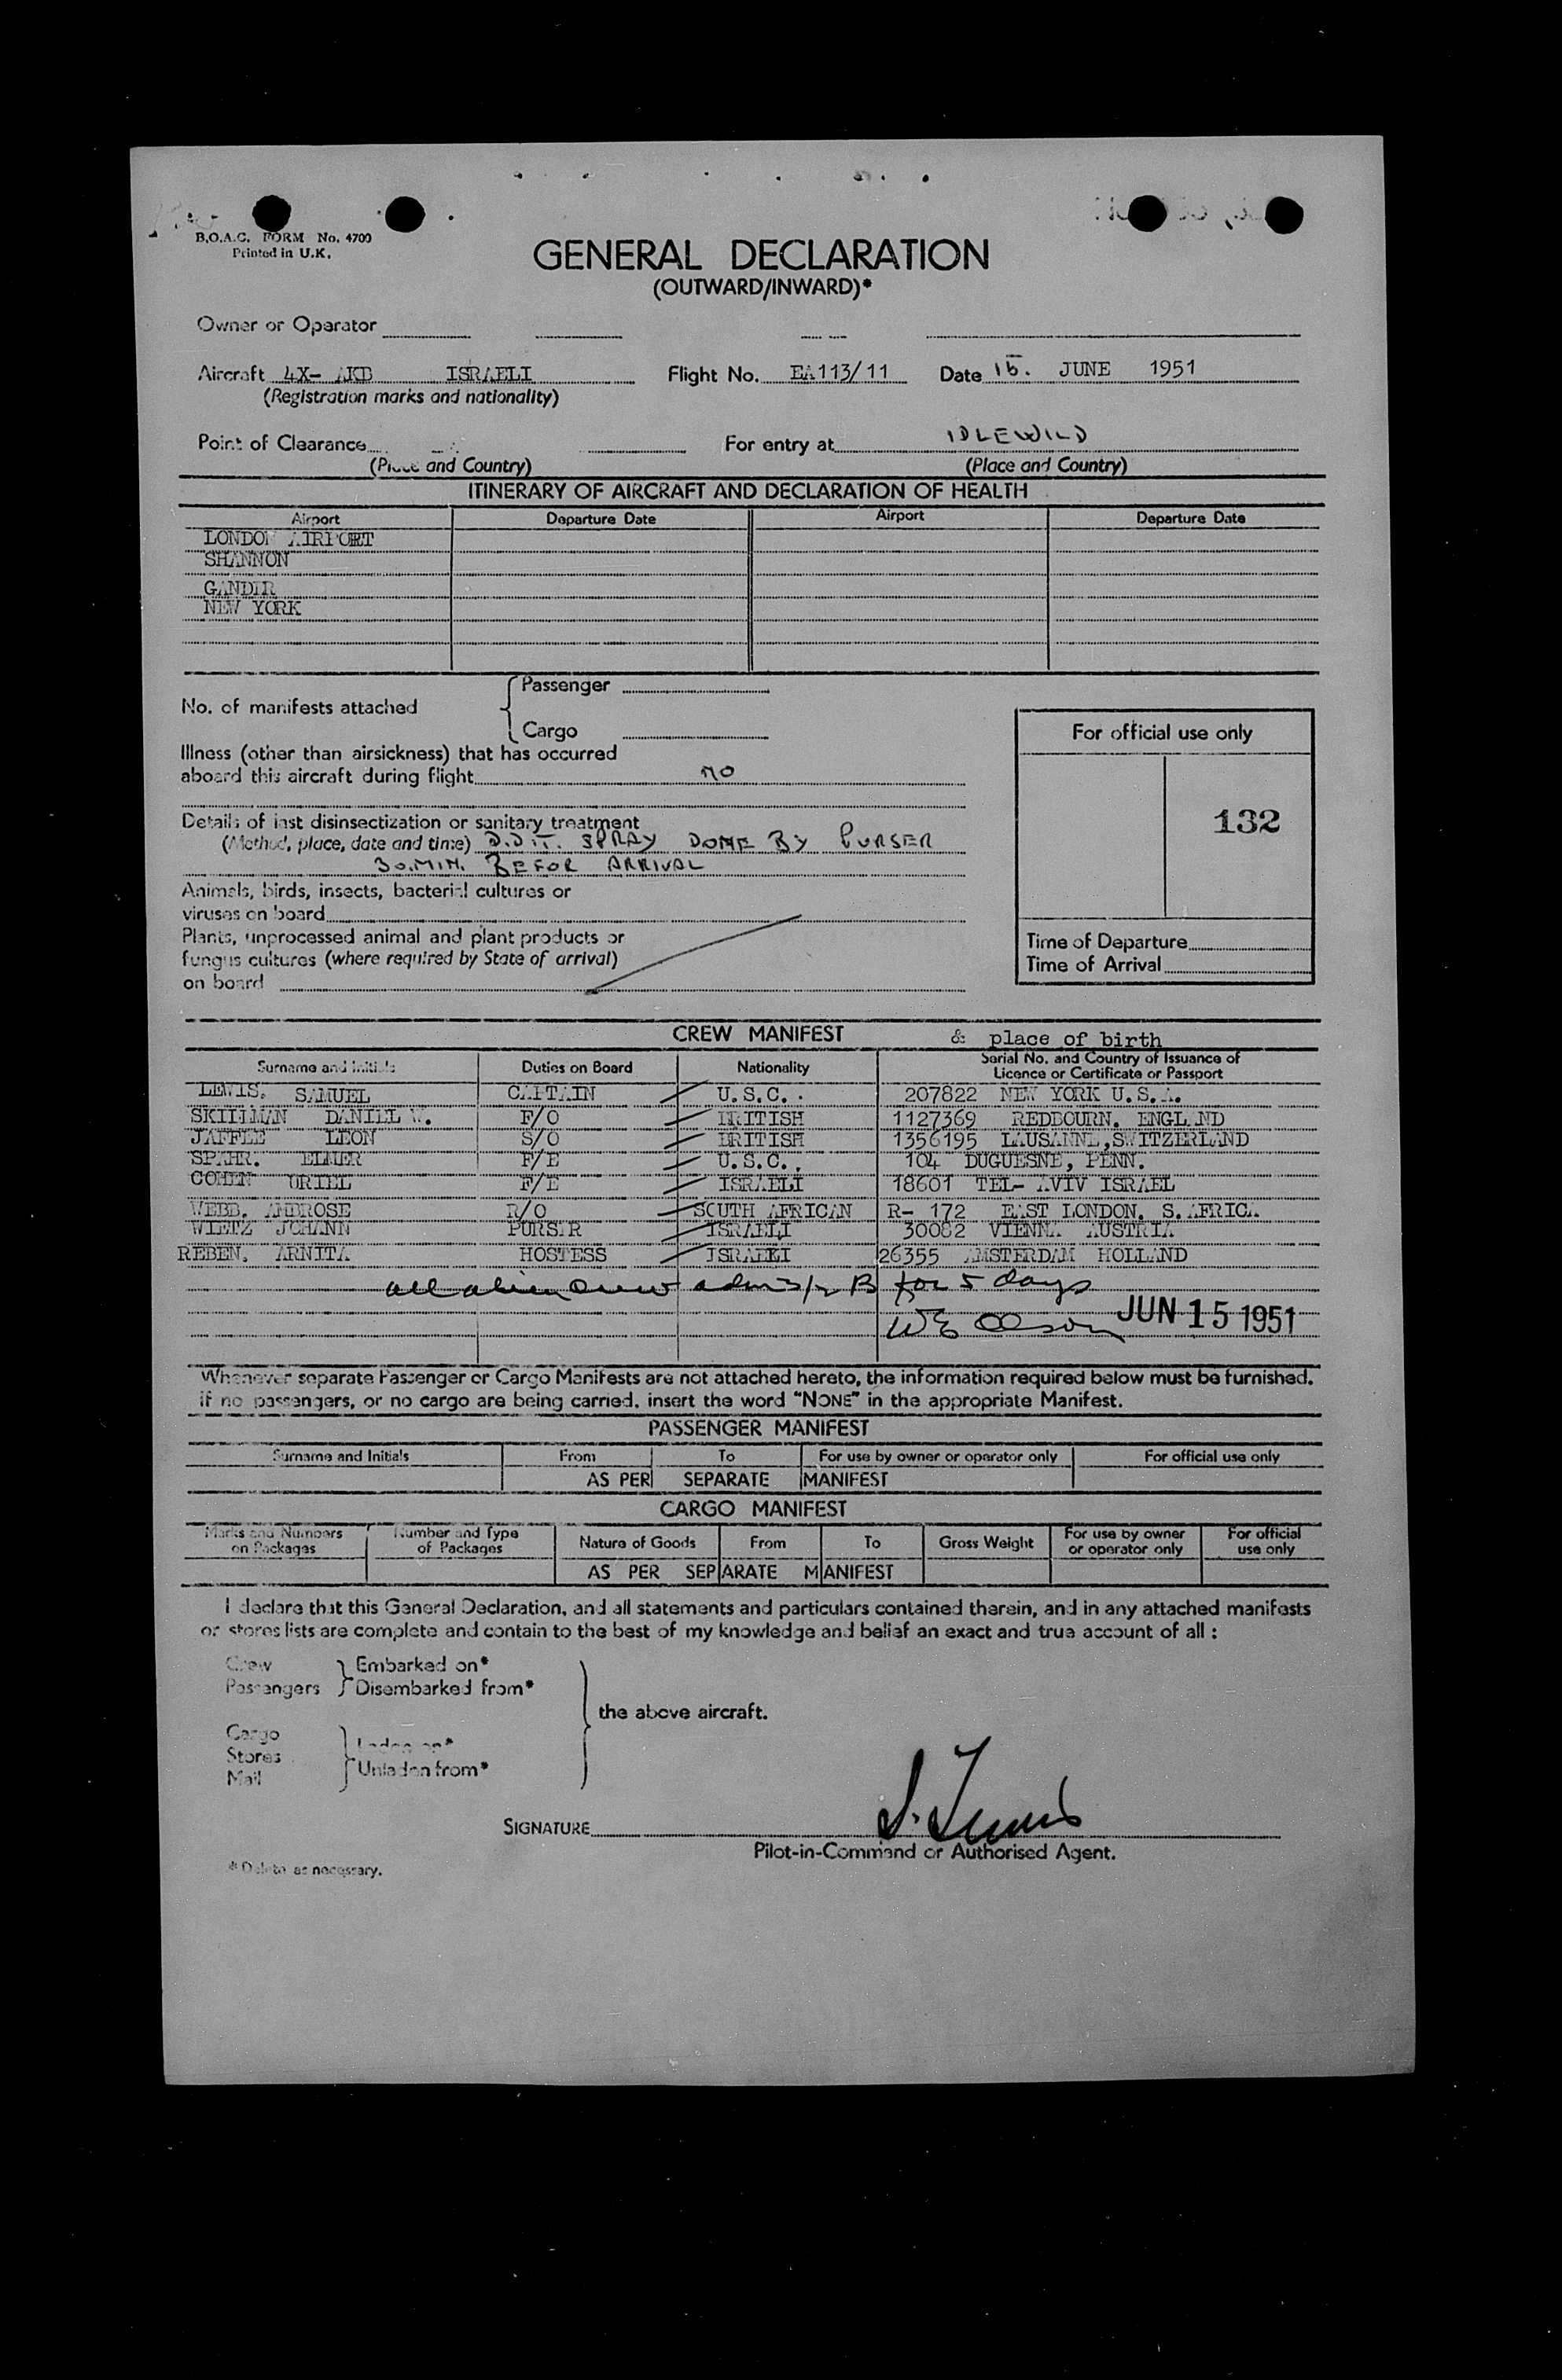 B.O.A.C. FORM No. 4700
Printed in U.K.
GENERAL DECLARATION
(OUTWARD/INWARD)*
Owner or Operator
Aircraft 4X- AKD ISRAELI Flight No. EA113/11 Date 15. JUNE 1951
(Registration marks and nationality)
Point of Clearance For entry at IDLEWILD
(Place and Country) (Place and Country)
ITINERARY OF AIRCRAFT AND DECLARATION OF HEALTH
Airport Departure Date Airport Departure Date
LONDON AIRPORT
SHANNON
GANDER
NEW YORK
No. of manifests attached { Passenger
Cargo
Illness (other than airsickness) that has occurred
aboard this aircraft during flight NO
Details of last disinsectization or sanitary treatment
(Method, place, date and time) D.D.T. SPRAY DONE BY PURSER
30.MIN. BEFOR ARRIVAL
Animals, birds, insects, bacterial cultures or
viruses on board
Plants, unprocessed animal and plant products or
fungus cultures (where required by State of arrival)
on board
For official use only
132
Time of Departure
Time of Arrival
CREW MANIFEST & place of birth
Surname and Initials Duties on Board Nationality Serial No. and Country of Issuance of Licence or Certificate or Passport
LEWIS. SAMUEL CAPTAIN U.S.C. 207822 NEW YORK U.S.A.
SKILLMAN DANIEL W. F/O BRITISH 1127369 REDBOURN. ENGLAND
JAFFEE LEON S/O BRITISH 1356195 LAUSANNE,SWITZERLAND
SPAHR. ELMER F/E U.S.C. 104 DUGUESNE, PENN.
COHEN URIEL F/E ISRAELI 18601 TEL- AVIV ISRAEL
WEBB. AMBROSE R/O SOUTH AFRICAN R- 172 EAST LONDON. S.AFRICA
WIETZ JOHANN PURSER ISRAELI 30082 VIENNA AUSTRIA
REBEN. ARNITA HOSTESS ISRAELI 26355 AMSTERDAM HOLLAND
all alien crew adm for 5 days
W E Olson JUN 15 1951
Whenever separate Passenger or Cargo Manifests are not attached hereto, the information required below must be furnished.
if no passengers, or no cargo are being carried, insert the word "NONE" in the appropriate Manifest.
PASSENGER MANIFEST
Surname and Initials From To For use by owner or operator only For official use only
AS PER SEPARATE MANIFEST
CARGO MANIFEST
Marks and Numbers on Packages Number and Type of Packages Nature of Goods From To Gross Weight For use by owner or operator only For official use only
AS PER SEPARATE MANIFEST
I declare that this General Declaration, and all statements and particulars contained therein, and in any attached manifests
or stores lists are complete and contain to the best of my knowledge and belief an exact and true account of all :
Crew
Passengers } Embarked on*
Disembarked from*
the above aircraft.
Cargo
Stores
Mail
Laden on*
Unladen from*
SIGNATURE S. Lewis
Pilot-in-Command or Authorised Agent.
* Delete as necessary.